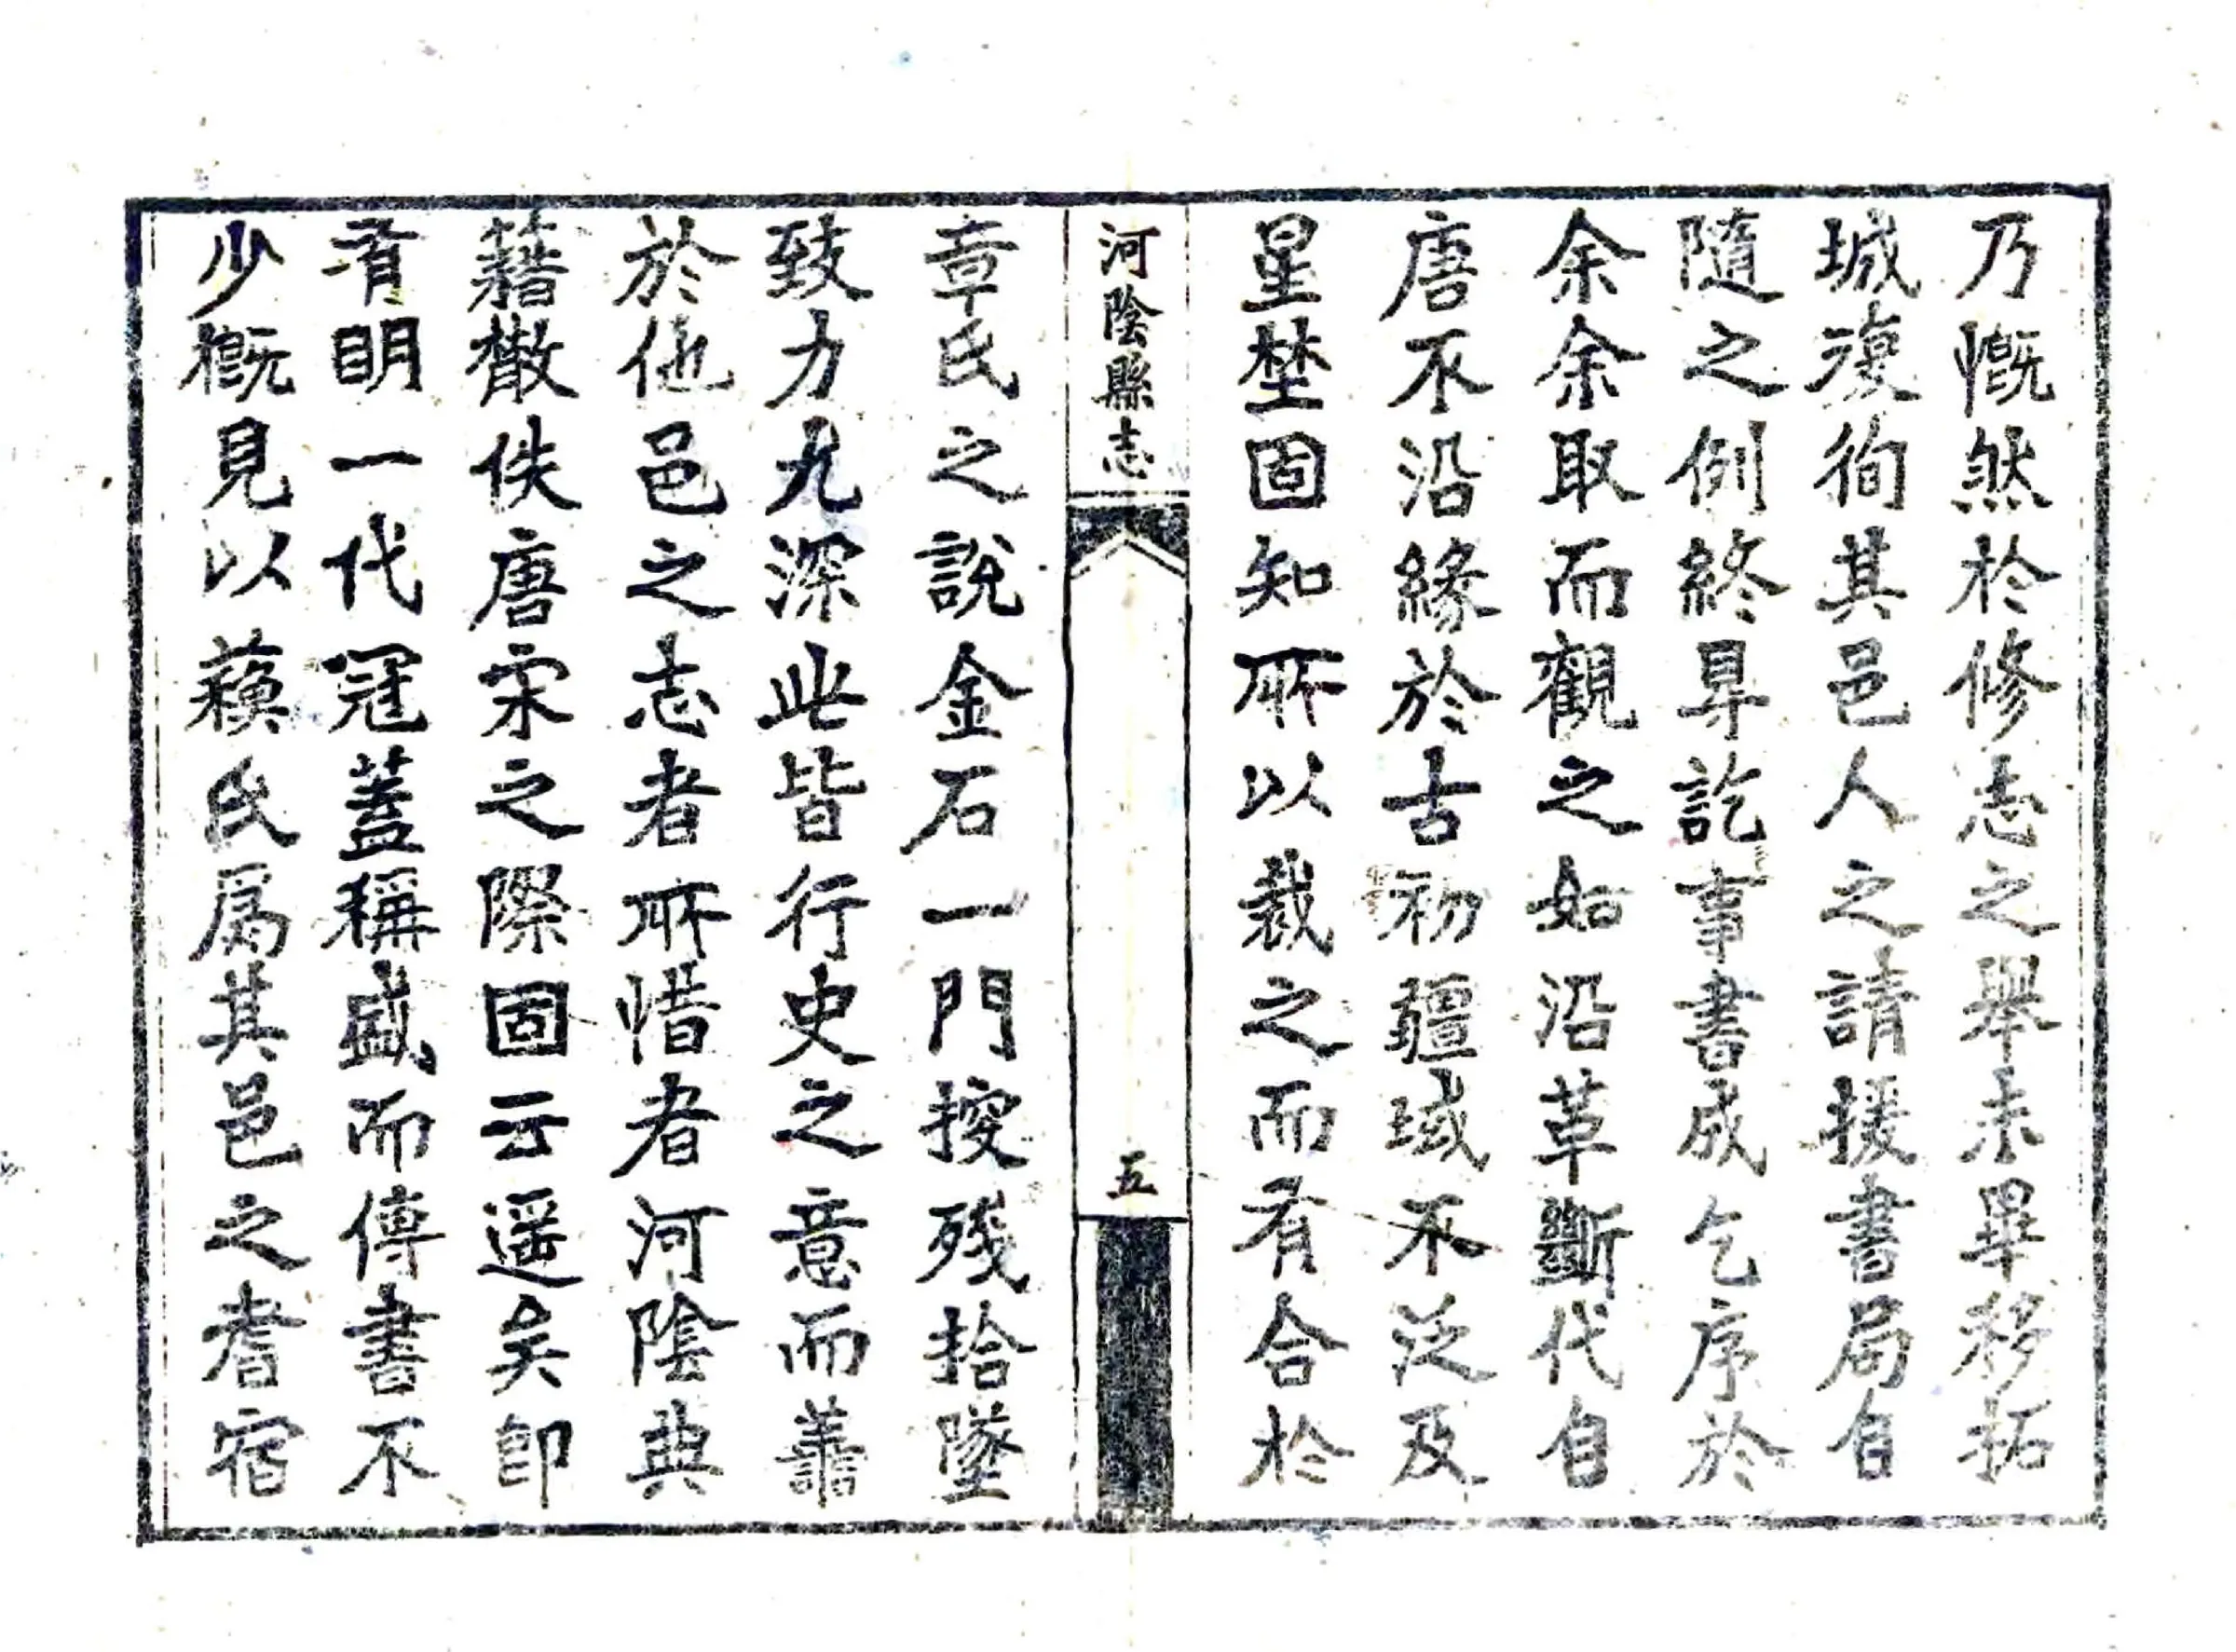 乃慨然於修志之舉未畢移拓
城復徇其邑人之請援書局自
隨之例終㝵訖事書成乞序於
余余取而觀之如沿革斷代自
唐不沿緣於古初疆域不泛及
星埜固知所以裁之而有合於
河陰縣志
五
章氏之說金石一門搜殘拾墜
致力尤深此皆行史之意而譱
於他邑之志者所惜者河陰典
籍散佚唐宋之際固云遥矣即
有明一代冠蓋稱盛而傳書不
少概見以蘓氏為其邑之耆宿